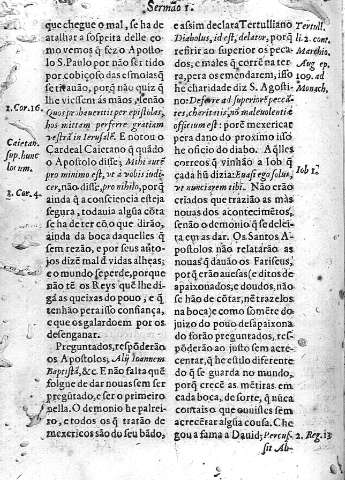 Sermão 1.
que chegue o mal, se ha de
atalhar a sospeita delle co
mo vemos q̃ fez o Aposto-
lo S. Paulo por não ser tido
por cobiçoso das esmolas q̃
se tirauão, porq̃ não quiz q̃
lhe viessem ás mãos, senão
1. Cor. 16.
Quos probaueritis per epistolas,
hos mittam perferre gratiam
vestrã in Ierusalẽ. E notou o
Caietan.
sup. hunc
locum.
Cardeal Caietano q̃ quãdo
o Apostolo disse; Mihi autẽ
pro minimo est, vt à vobis iudi-
cer, não disse, pro nihilo, porq̃
1. Cor. 4.
ainda q̃ a consciencia esteja
segura, todauia algũa cõta
se ha de ter cõ o que dirão,
ainda da boca daquelles q̃
sem rezão, e por seus anto-
jos dizẽ mal d̃ vidas alheas;
e o mundo se perde, porque
não tẽ os Reys quẽ lhe di-
gá as queixas do pouo, e q̃
tenhão pera isso confiança,
e que os galardoem por os
desenganar.
Preguntados, respõderão
os Apostolos; Alij Ioannem
Baptistã, &c. E não falta quẽ
folgue de dar nouas sem ser
pregũtado, e ser o primeiro
nella. O demonio he palrei-
ro, e todos os q̃ tratão de
mexericos são do seu bãdo,
e assim declara Tertulliano
Diabolus, id est, delator, porq̃
Tertull.
li. 2. cont.
Marchio.
refirir ao superior os peca-
dos; e males q̃ correm na ter-
ra, pera os emendarem, isso
Aug ep.
109. ad
Monach.
he charidade diz S. Agosti-
no: Deferre ad superiorẽ pecca-
tes, charitatis, nõ maleuolentiæ
officium est: porẽ mexericar
pera dano do proximo isso
he officio do diabo. Aq̃lles
correos q̃ vinhão a Iob q̃
Iob 1.
cada hũ dizia: Euasi ego solus,
vt nunciarem tibi. Não erão
criados que trazião as más
nouas dos acontecimẽtos,
senão o demonio q̃ se delei-
taua em as dar. Os Santos A-
postolos não relatarão as
nouas q̃ dauão os Fariseus,
porq̃ erão auessas e ditos de
apaixonados, e doudos, não
se hão de cõtar, nẽ trazelos
na boca; e como sõmẽte do
juizo do pouo desapaixona-
do forão preguntados, respõ-
derão ao justo sem acre-
centar, q̃ he estilo diferente
do q̃ se guarda no mundo,
porq̃ crecẽ as mẽtiras em
cada boca, de sorte, q̃ nũca
contais o que ouuistes sẽm
acrecẽtar algũa cousa. Che
gou a fama a Dauid; Percus-
2. Reg. 13
sit Ab-